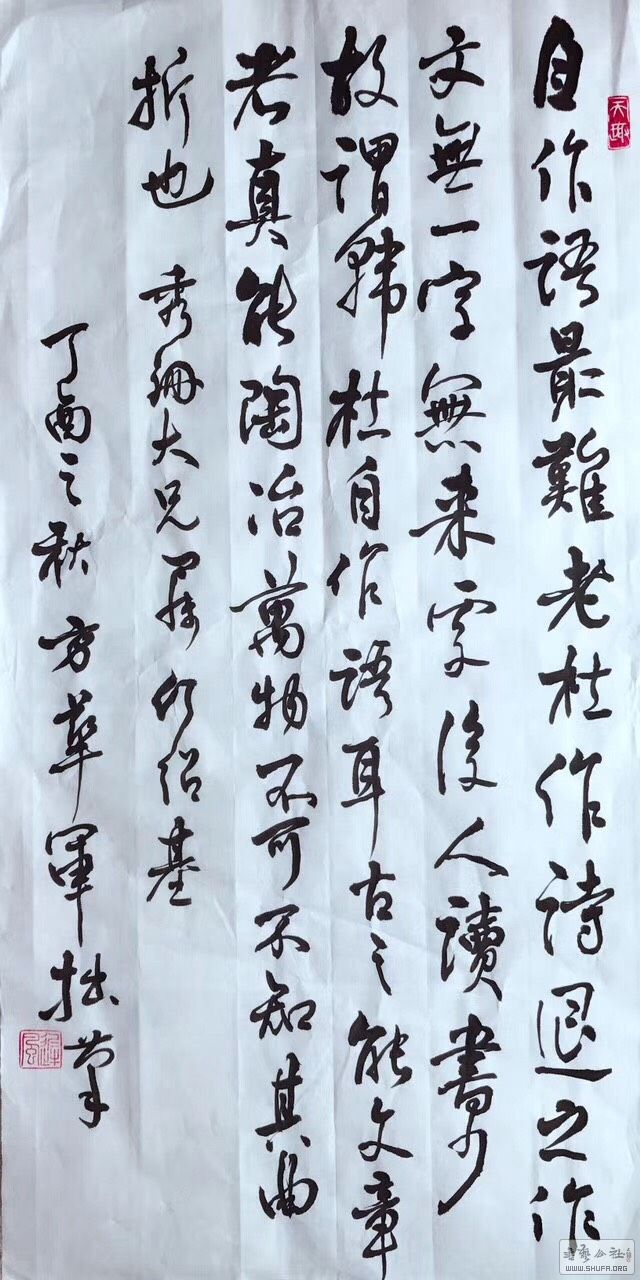 天趣
自作語最難老杜作詩退之作
文無一字無来處後人讀書少
故謂韓杜自作語耳古之能文章
老真能陶冶萬物不可不知其曲
折也 秀珊大兄屬 何紹基
丁酉之秋 方華軍拙筆
書藝公社
WWW.SHUFA.ORG